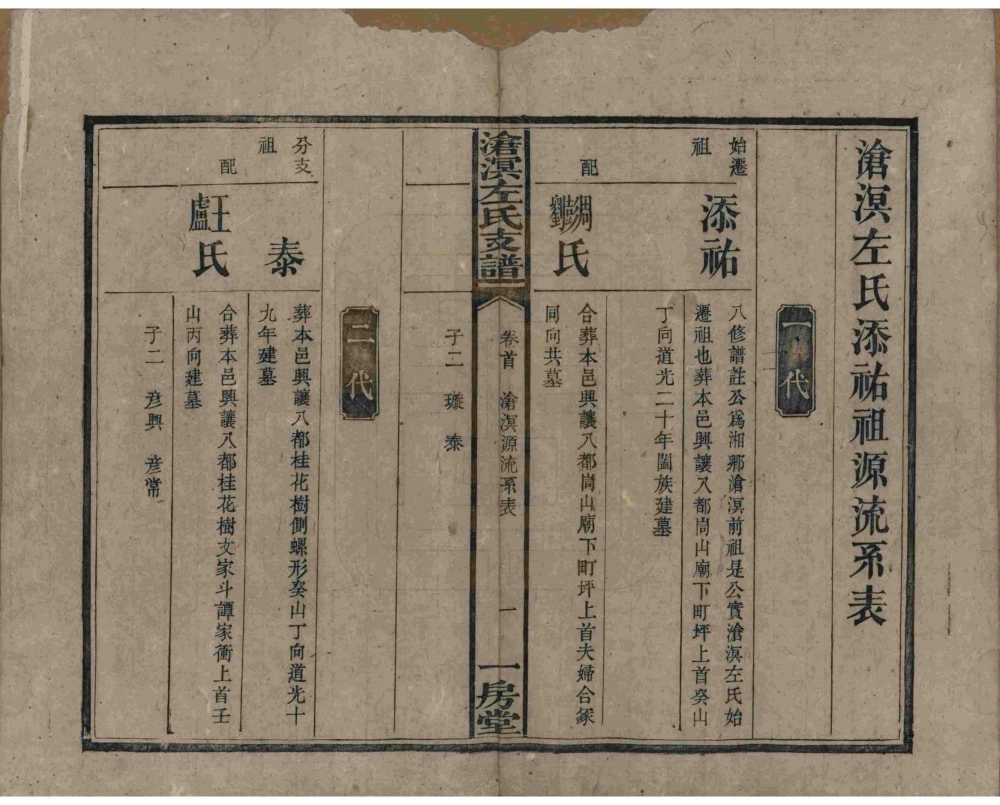 滄溟左氏添祐祖源流系表
一代
始遷祖
添祐
八修譜註公爲湘鄉滄溟前祖是公實滄溟左氏始
遷祖也葬本邑興讓八都筒山廟下町坪上首癸山
丁向道光二十年闔族建墓
配
劉彭周氏
合葬本邑興讓八都筒山廟下町坪上首夫婦合冢
同向共墓
滄溟左氏支譜
卷首
滄溟源流系表
一
一房堂
子二 璇 泰
二代
分支祖
泰
葬本邑興讓八都桂花樹側螺形癸山丁向道光十
九年建墓
配
盧王氏
合葬本邑興讓八都桂花樹文家斗譚家衝上首壬
山丙向建墓
子二 彦興 彦常